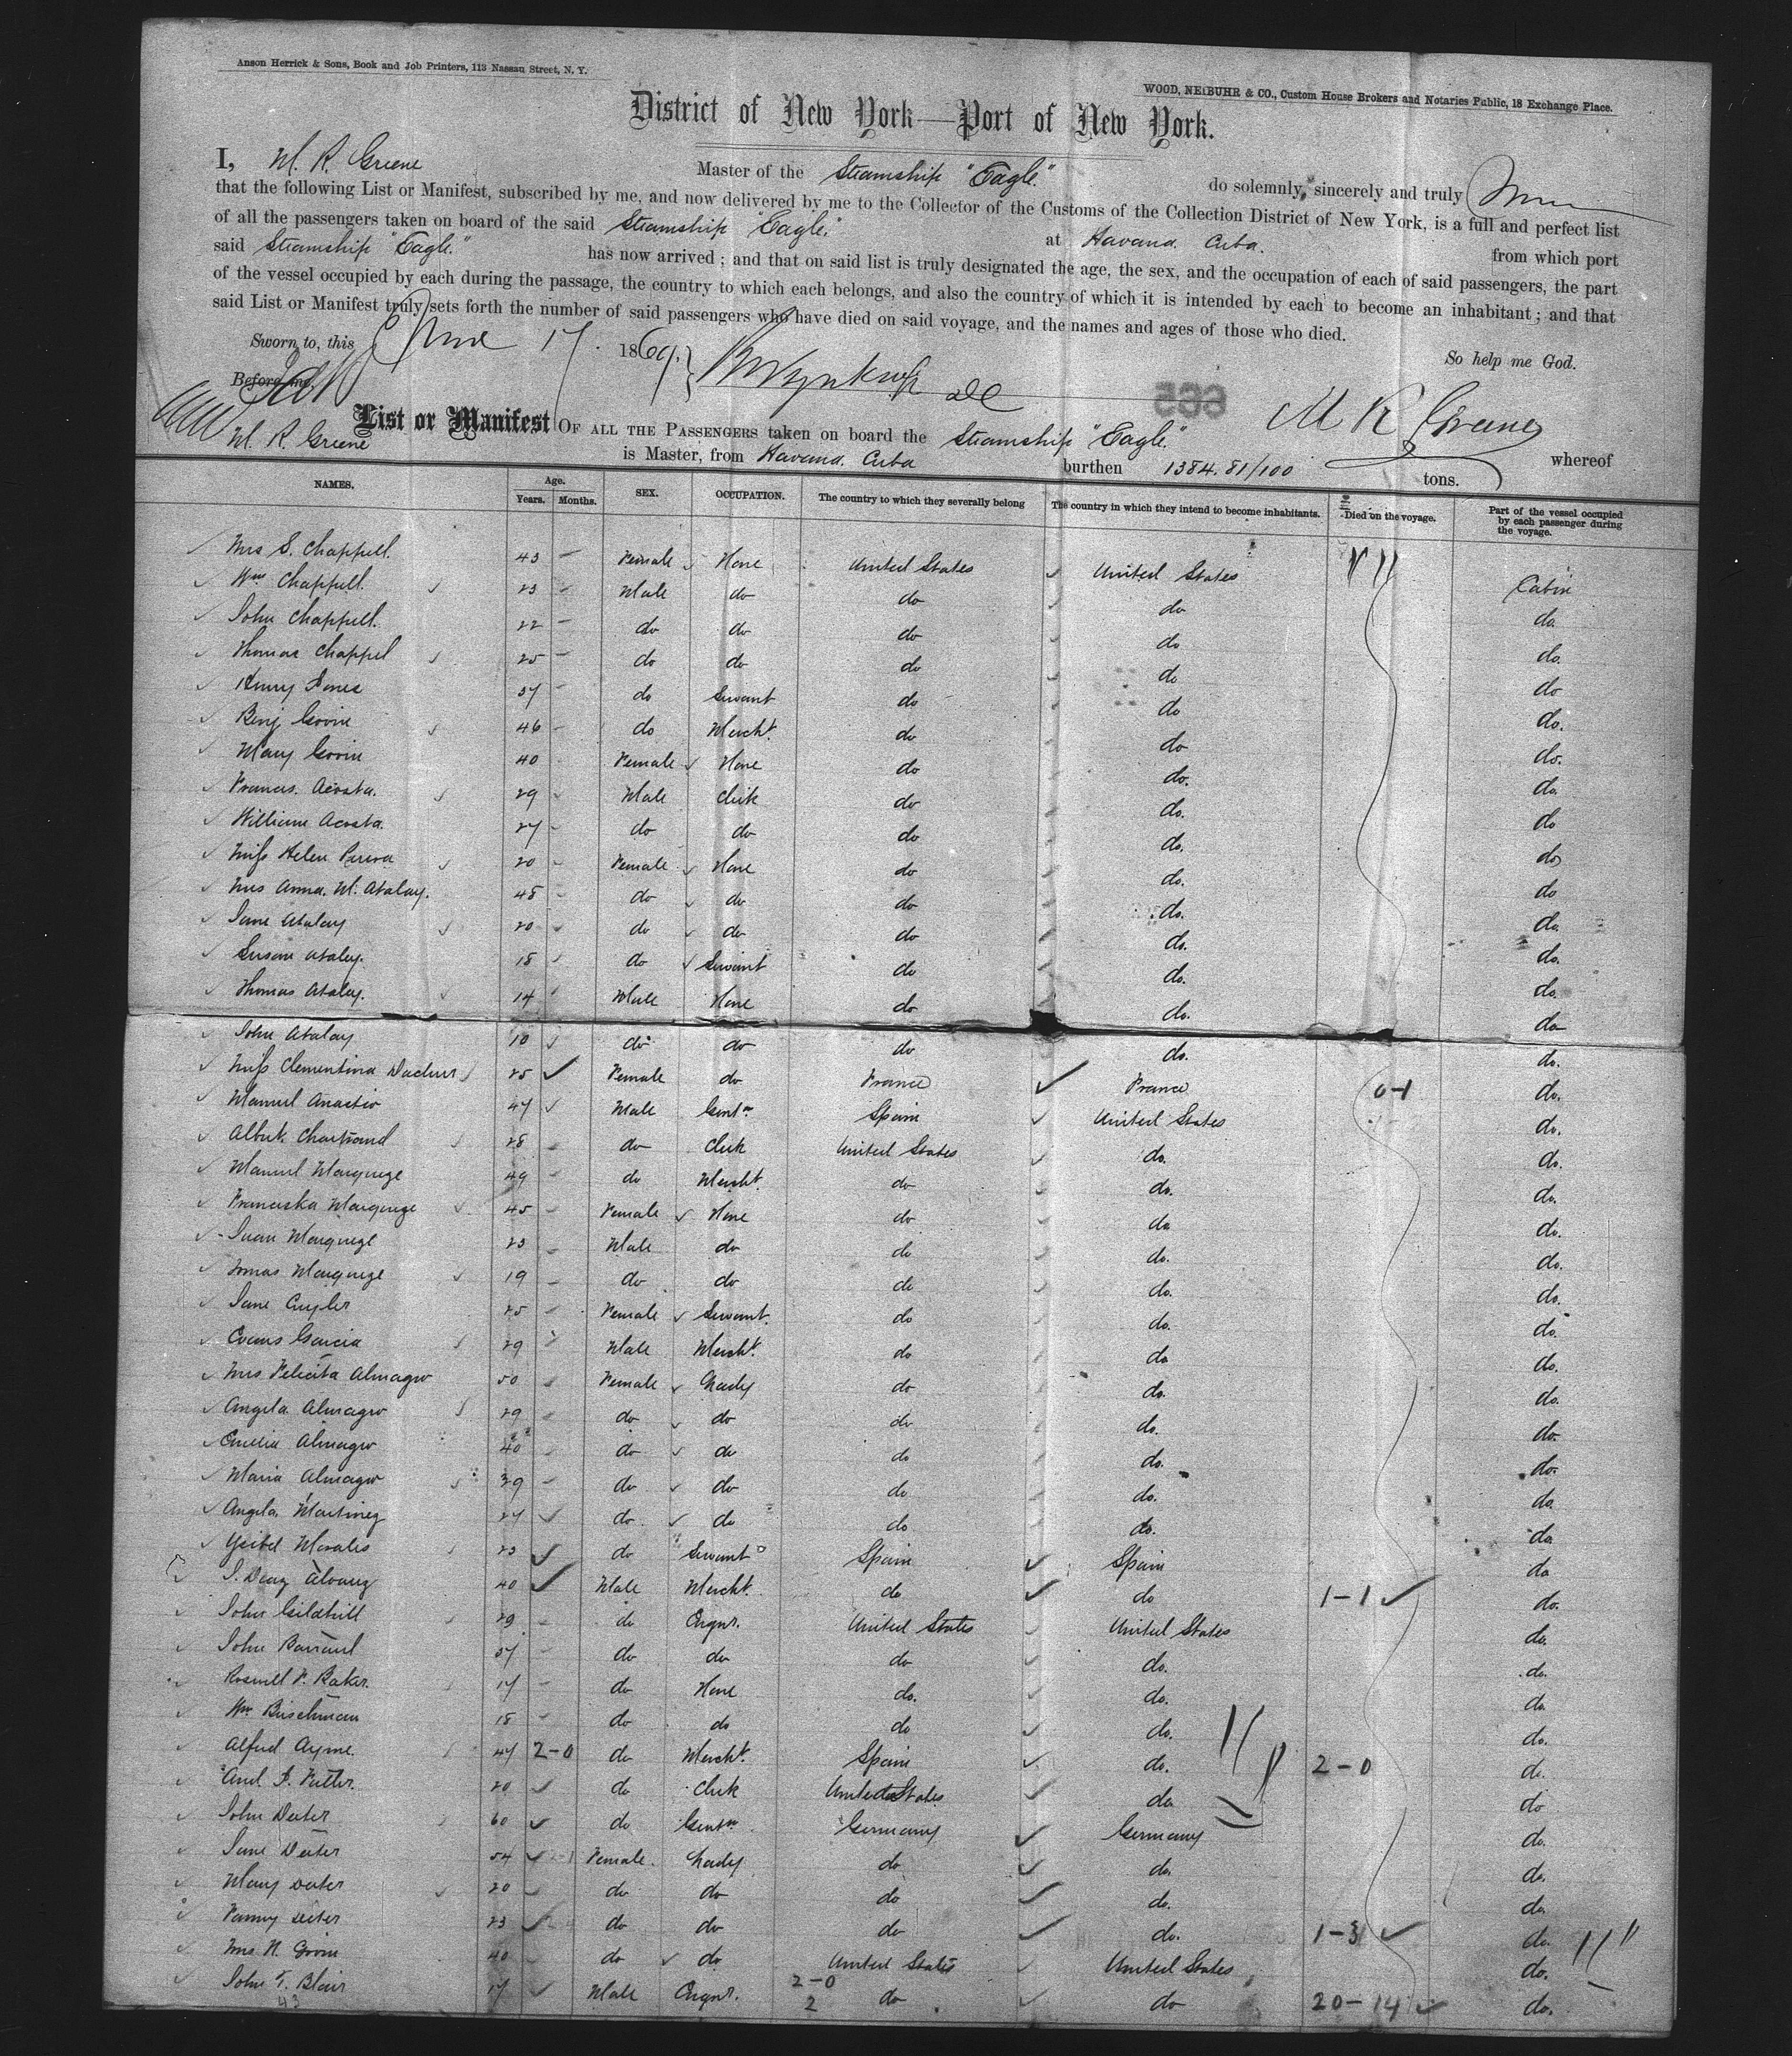 Anson Herrick & Sons, Book and Job Printers, 113 Nassau Street, N. Y.
WOOD, NEIBUHR & CO., Custom House Brokers and Notaries Public, 18 Exchange Place.
District of New York—Port of New York.
I, M. R. Greene Master of the Steamship "Eagle." do solemnly, sincerely and truly
that the following List or Manifest, subscribed by me, and now delivered by me to the Collector of the Customs of the Collection District of New York, is a full and perfect list
of all the passengers taken on board of the said Steamship "Eagle." at Havana. Cuba. from which port
said Steamship "Eagle." has now arrived; and that on said list is truly designated the age, the sex, and the occupation of each of said passengers, the part
of the vessel occupied by each during the passage, the country to which each belongs, and also the country of which it is intended by each to become an inhabitant; and that
said List or Manifest truly sets forth the number of said passengers who have died on said voyage, and the names and ages of those who died.
Sworn to, this June 17. 1869. So help me God.
Before me,
M R Greene
List or Manifest OF ALL THE PASSENGERS taken on board the Steamship "Eagle." whereof
M. R Greene is Master, from Havana. Cuba burthen 1384.81/100 tons.
NAMES. Age. Years. Months. SEX. OCCUPATION. The country to which they severally belong The country in which they intend to become inhabitants. Died on the voyage. Part of the vessel occupied by each passenger during the voyage.
Mrs S. Chappell. 43 Female None United States United States Cabin
Wm Chappell. 23 Male do do do do
John Chappell. 22 do do do do do.
Thomas Chappel 25 do do do do do
Henry Jones 37 do Servant do do do.
Benj Govin 46 do Mercht. do do do.
Mary Govin 40 Female None do do. do.
Francis. Acosta. 29 Male Clerk do do. do
William Acosta. 27 do do do do. do
Miss Helen 20 Female None do do. do
Mrs Anna. M. Atalay. 48 do do do do. do.
Jane Atalay 20 do do do do. do.
Susan Atalay. 18 do Servant do do. do.
Thomas Atalay. 14 Male None do do. do
John Atalay 10 do do do do. do.
Miss Clementina 25 Female do France France 0-1 do.
Manuel 47 Male Gentn Spain United States do.
Albert. Chartrand 28 do Clerk United States do. do.
Manuel Marquege 49 do Mercht. do do. do.
Franciska Marquege 45 Female None do do do.
Juan Marquege 23 Male do do do. do.
Tomas Marquege 19 do do do do. do.
Jane Cuyler 25 Female Servant. do do. do.
Evans Garcia 29 Male Mercht. do do do.
Mrs Felicita Almagro 50 Female Lady do do. do.
Angela Almagro 29 do do do do. do.
Emelia Almagro 40 do do do do. do.
Maria Almagro 39 do do do do. do.
Angela Martinez 27 do do do do. do
Ysibel Morales 23 do Servant Spain Spain do
S. Diaz Alvarez 40 Male Mercht. do do 1-1 do.
John Gildhill 29 do Engnr. United States United States do.
John 37 do do do do. do.
Roswell P. Baker. 17 do None do. do. do.
Wm Buschman 18 do do do do. do.
Alfred Ayme. 47 2-0 do Mercht. Spain do. 2-0 do.
And. F. 20 do Clerk United States do do
John Deiter 60 do Gentn Germany Germany do.
Jane Deiter 54 Female. Lady do do. do.
Mary Deiter 20 do do do do. do.
Fanny Deiter 23 do do do do. 1-3 do.
Mrs. N. Govin 40 do do United States United States do.
John T. Blair 17 Male Engnr. 2-0 2 do do 20-14 do.
43